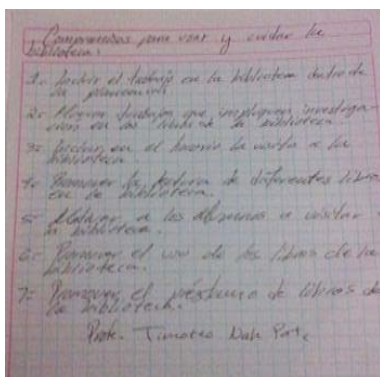 Compromisos para usar y cuidar la
biblioteca:
1- Incluir el trabajo en la biblioteca dentro de
la planeación
2- Planear trabajos que impliquen investiga-
ción en los libros de la biblioteca
3- Incluir en el horario la visita a la
biblioteca
4- Promover la lectura de diferentes libros
en la biblioteca.
5- a los alumnos a visitar
la biblioteca.
6- Promover el uso de los libros de la
biblioteca.
7- Promover el préstamo de libros de
la biblioteca.
Profr. Timoteo